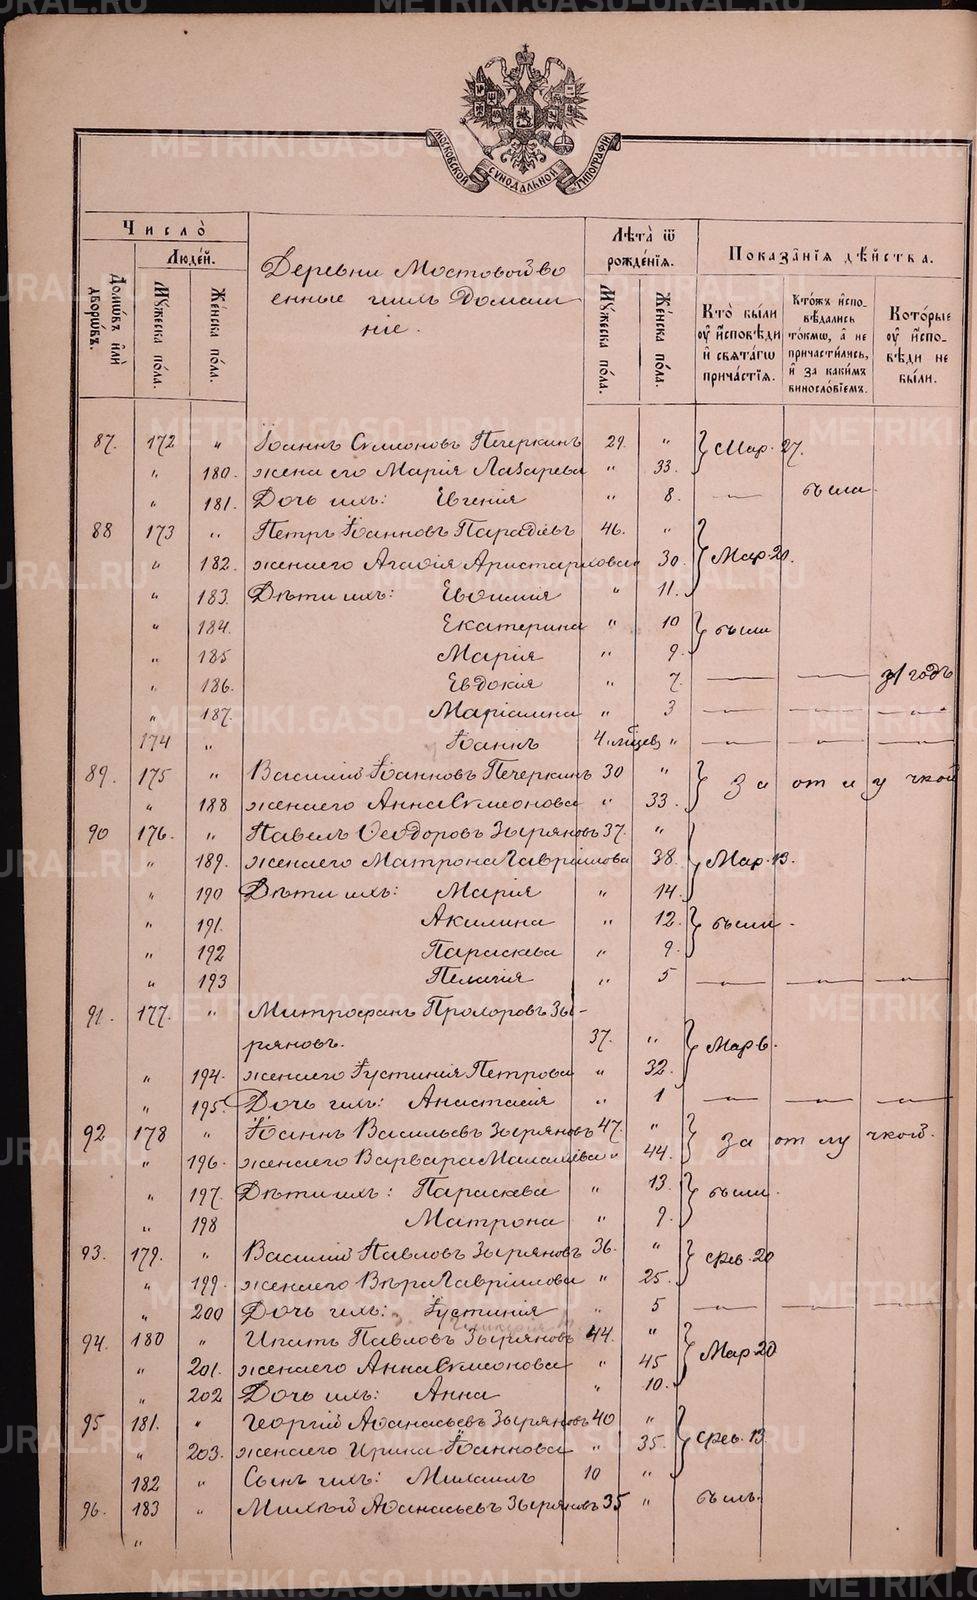 METRIKI.GASO-URAL.RU
МОСКОВСКОЙ СѴНОДАЛЬНОЙ ТИПОГРАФІИ
Число̀
Людéй.
Домѡ́въ и҆лѝ дворѡ́въ.
Мꙋ́жеска по́ла.
Же́нска по́ла.
Деревни Мостовой во
енные и ихъ домаш
ніе.
Лѣта̀ ѿ рожде́нїѧ.
Мꙋ́жеска по́ла.
Же́нска по́ла.
Показа̑нїѧ дѣ́йства.
Кто̀ бы́ли ᲂу҆ и҆сповѣ́ди и҆ свѧта́гѡ прича́стїѧ.
Кто́жъ и҆спо-вѣ́дались то́кмѡ, а҆ не причасти́лись, и҆ за каки́мъ винослѡ́вїемъ.
Кото́рые ᲂу҆ и҆спо-вѣ́ди не бы́ли.
87. 172 " Іоаннъ Симеоновъ Печеркинъ 29. " Мар. 27.
" 180. жена его Марія Лазарева " 33.
" 181. Дочь ихъ: Евгенія " 8. — была.
88 173 " Петръ Іоанновъ 46. " Мар. 20.
" 182. жена его Агафія Аристархова 30.
" 183. Дѣти ихъ: Евфимія " 11.
" 184. Екатерина " 10 были
" 185 Марія " 9.
" 186. Евдокія " 7. — — годъ
" 187. Маріамна " 3 — — —
174 " Іоаннъ 4 мѣсев " — — —
89. 175 " Василій Іоанновъ Печеркинъ 30 " За отлучкой
" 188 жена его Анна Симеонова " 33.
90 176. " Павелъ Ѳеодоровъ Зыряновъ 37. " Мар. 13.
" 189. жена его Матрона Гавріилова 38.
" 190 Дѣти ихъ: Марія " 14.
" 191. Акилина " 12. были.
" 192 Параскева " 9.
" 193 Пелагія " 5 — — —
91. 177. " Митрофанъ Прохоровъ Зы-
ряновъ. 37. " Мар 6.
" 194. жена его Іустинія Петрова " 32.
" 195. Дочь ихъ: Анастасія " 1 — — —
92 178 " Іоаннъ Васильевъ Зыряновъ 47. " За отлучкой.
" 196. жена его Варвара " 44.
" 197. Дѣти ихъ: Параскева " 13. были.
" 198 Матрона " 9.
93. 179. " Василій Павловъ Зыряновъ 36. " Фев. 20
" 199. жена его Вѣра Гавріилова " 25.
" 200 Дочь ихъ: Іустинія " 5 — — —
94. 180 " Ипатъ Павловъ Зыряновъ 44. " Мар 20
" 201. жена его Анна Симеонова " 45
" 202 Дочь ихъ: Анна " 10.
95 181. " Георгій Аѳанасьевъ Зыряновъ 40 " Фев. 13
" 203. жена его Ирина Іоаннова " 35.
182 " Сынъ ихъ: Михаилъ 10 "
96. 183 " Михѣй Аѳанасьевъ Зыряновъ 35 " былъ.
"